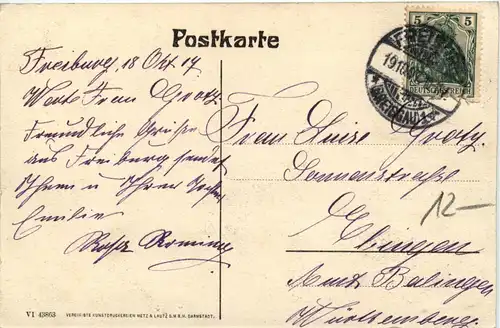 Postkarte
5 5
DEUTSCHES REICH
FREIBURG
(BREISGAU)
Freiburg, 18 Okt. 14
Werte Frau Grotz.
Freundliche Grüße
aus Freiburg sendet
Ihnen u Ihrer
Emilie
Rosa
Frau Luise Grotz
Sonnenstraße
12-
Ebingen
Amt Balingen
Württemberg
VI 43863 VEREINIGTE KUNSTDRUCKEREIEN METZ & LAUTZ G.M.B.H. DARMSTADT.